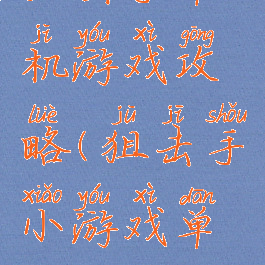 jī yóu xì gōng
机游戏攻
lüè jū jī shǒu
略(狙击手
xiǎo yóu xì dān
小游戏单